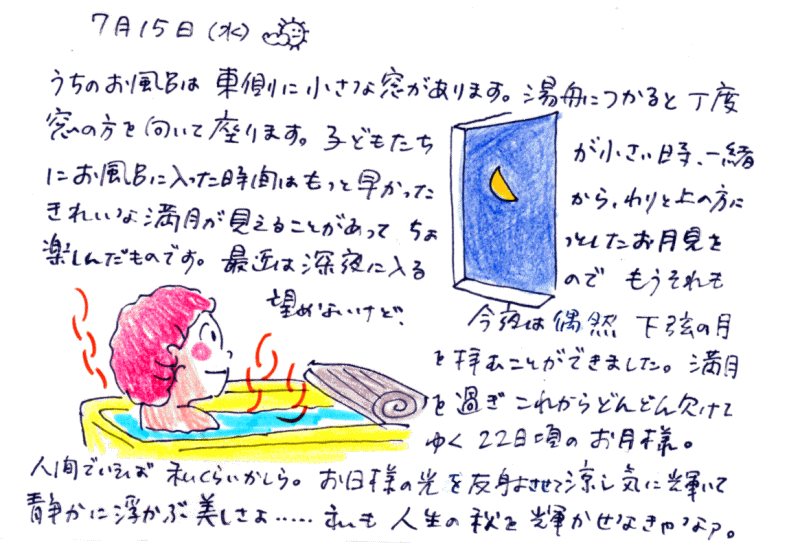 7月15日(水)
うちのお風呂は 東側に小さな窓があります。湯舟につかると 丁度
窓の方を向いて座ります。子どもたち が小さい時、一緒
にお風呂に入った時間はもっと早かった から、わりと上の方に
きれいな満月が見えることがあって ちょ っとしたお月見を
楽しんだものです。最近は深夜に入る ので もうそれも
望めないけど、 今夜は偶然 下弦の月
を拝むことができました。満月
を過ぎ これからどんどん欠けて
ゆく 22日頃の お月様。
人間でいえば 私くらいかしら。お日様の光を反射させて涼し気に輝いて
静かに浮かぶ美しさよ…… 私も 人生の秋を 輝かせなきゃなァ。